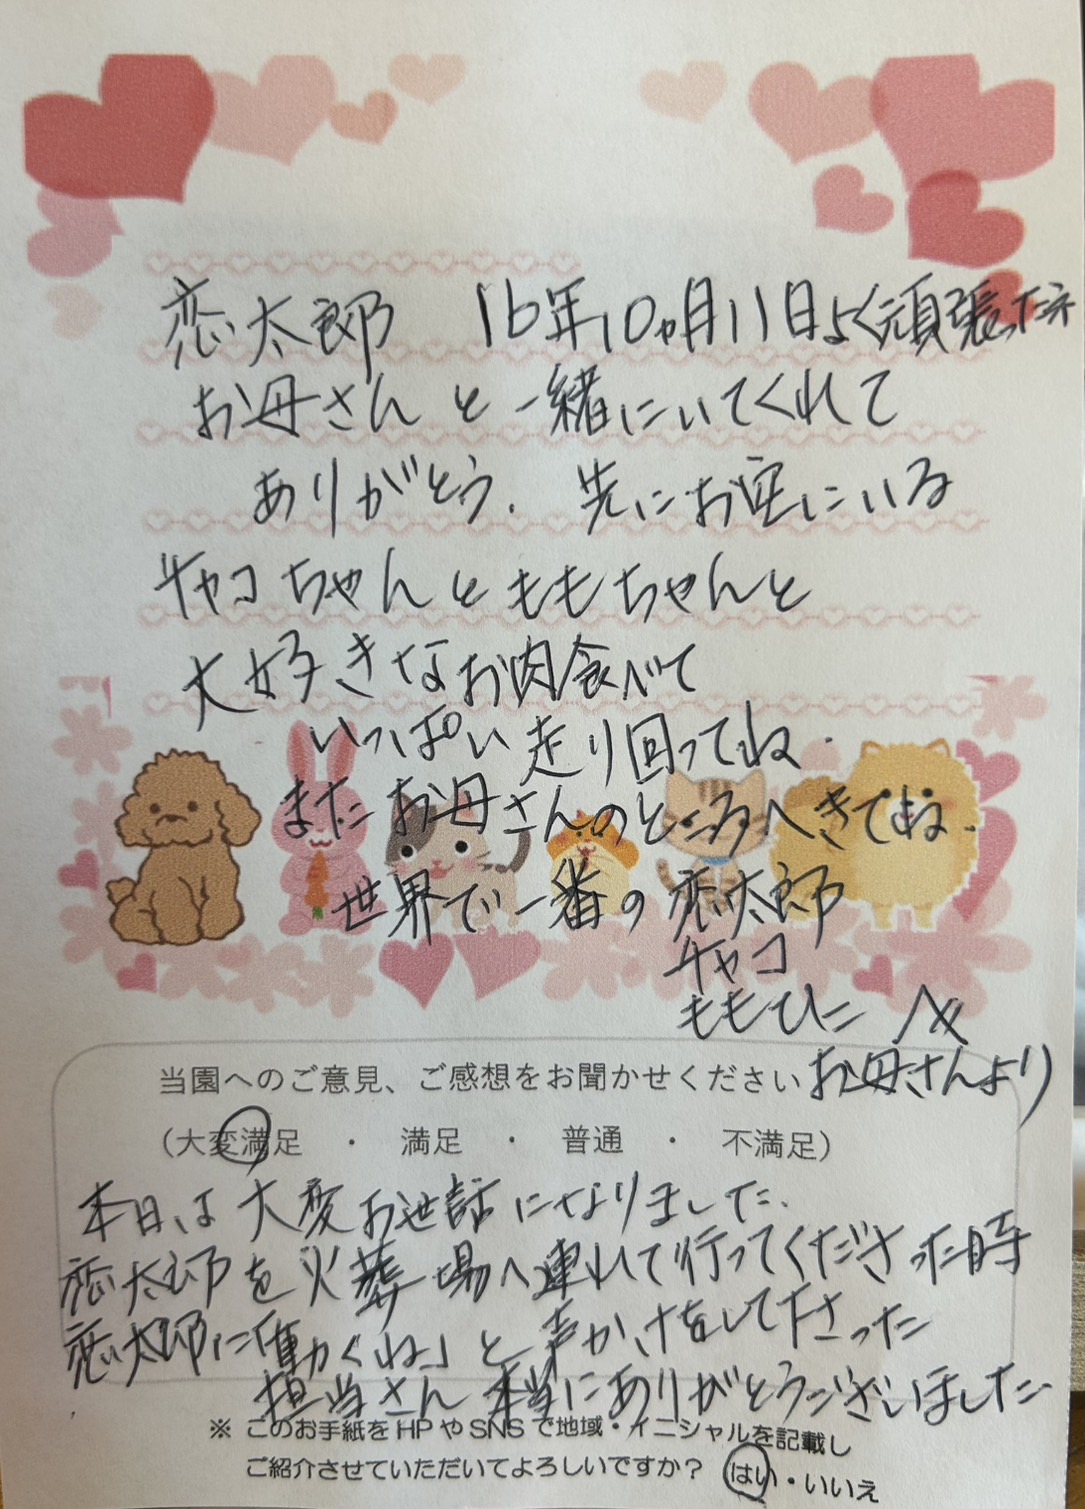 恋太郎 16年10ヵ月11日よく頑張ったネ
お母さんと一緒にいてくれて
ありがとう. 先にお空にいる
チャコちゃんとももちゃんと
大好きなお肉食べて
いっぱい走り回ってね.
またお母さんのところへきてね.
世界で一番の恋太郎
チャコ
もも
お母さんより
当園へのご意見、ご感想をお聞かせください
(大変満足 ・ 満足 ・ 普通 ・ 不満足)
本日は大変お世話になりました.
恋太郎を火葬場へ連れて行ってくださった時
恋太郎に「動くね」と声かけをして下さった
担当さん本当にありがとうございました.
※ このお手紙をHPやSNSで地域・イニシャルを記載し
ご紹介させていただいてよろしいですか? はい・いいえ